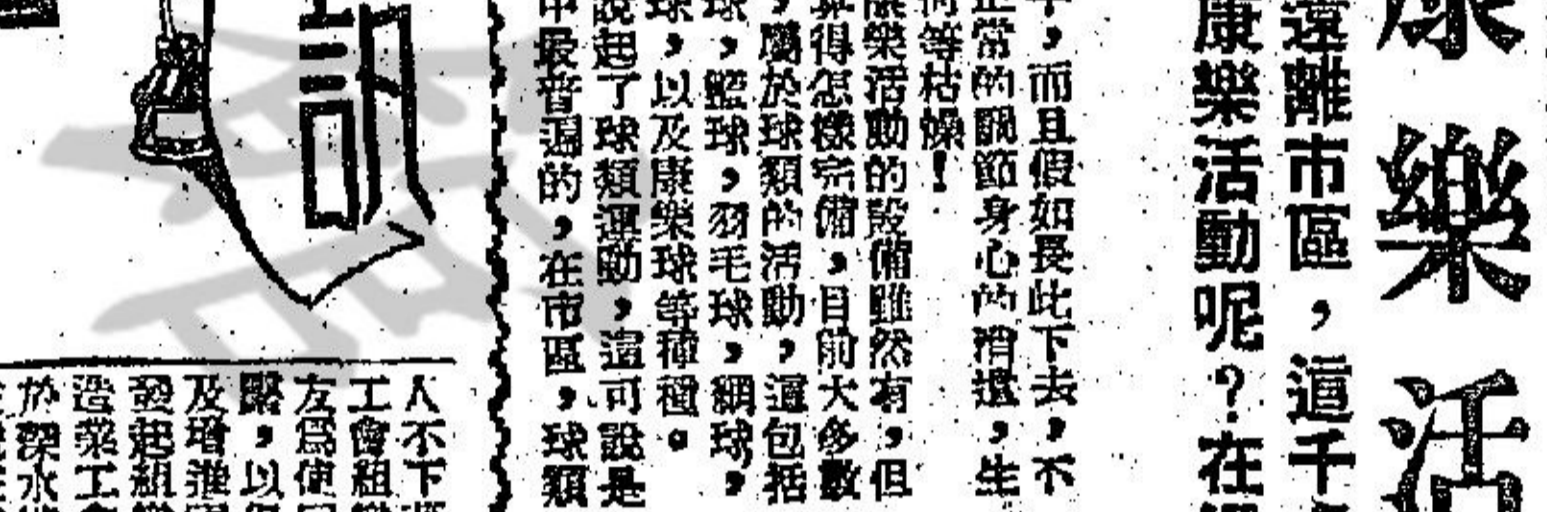 康樂活
遠離市區，這千
康樂活動呢？在
，而且假如長此下去，不
正常的調節身心的消遣，生
何等枯燥！
康樂活動的設備雖然有，但
算得怎樣完備，目前大多數
，屬於球類的活動，這包括
球，籃球，羽毛球，網球，
球，以及康樂球等種種。
說起了球類運動，這可說是
中最普遍的，在市區，球類
訊
人不下
工會組
友為使
繫，以
及增進
發起組
造業工
於深水